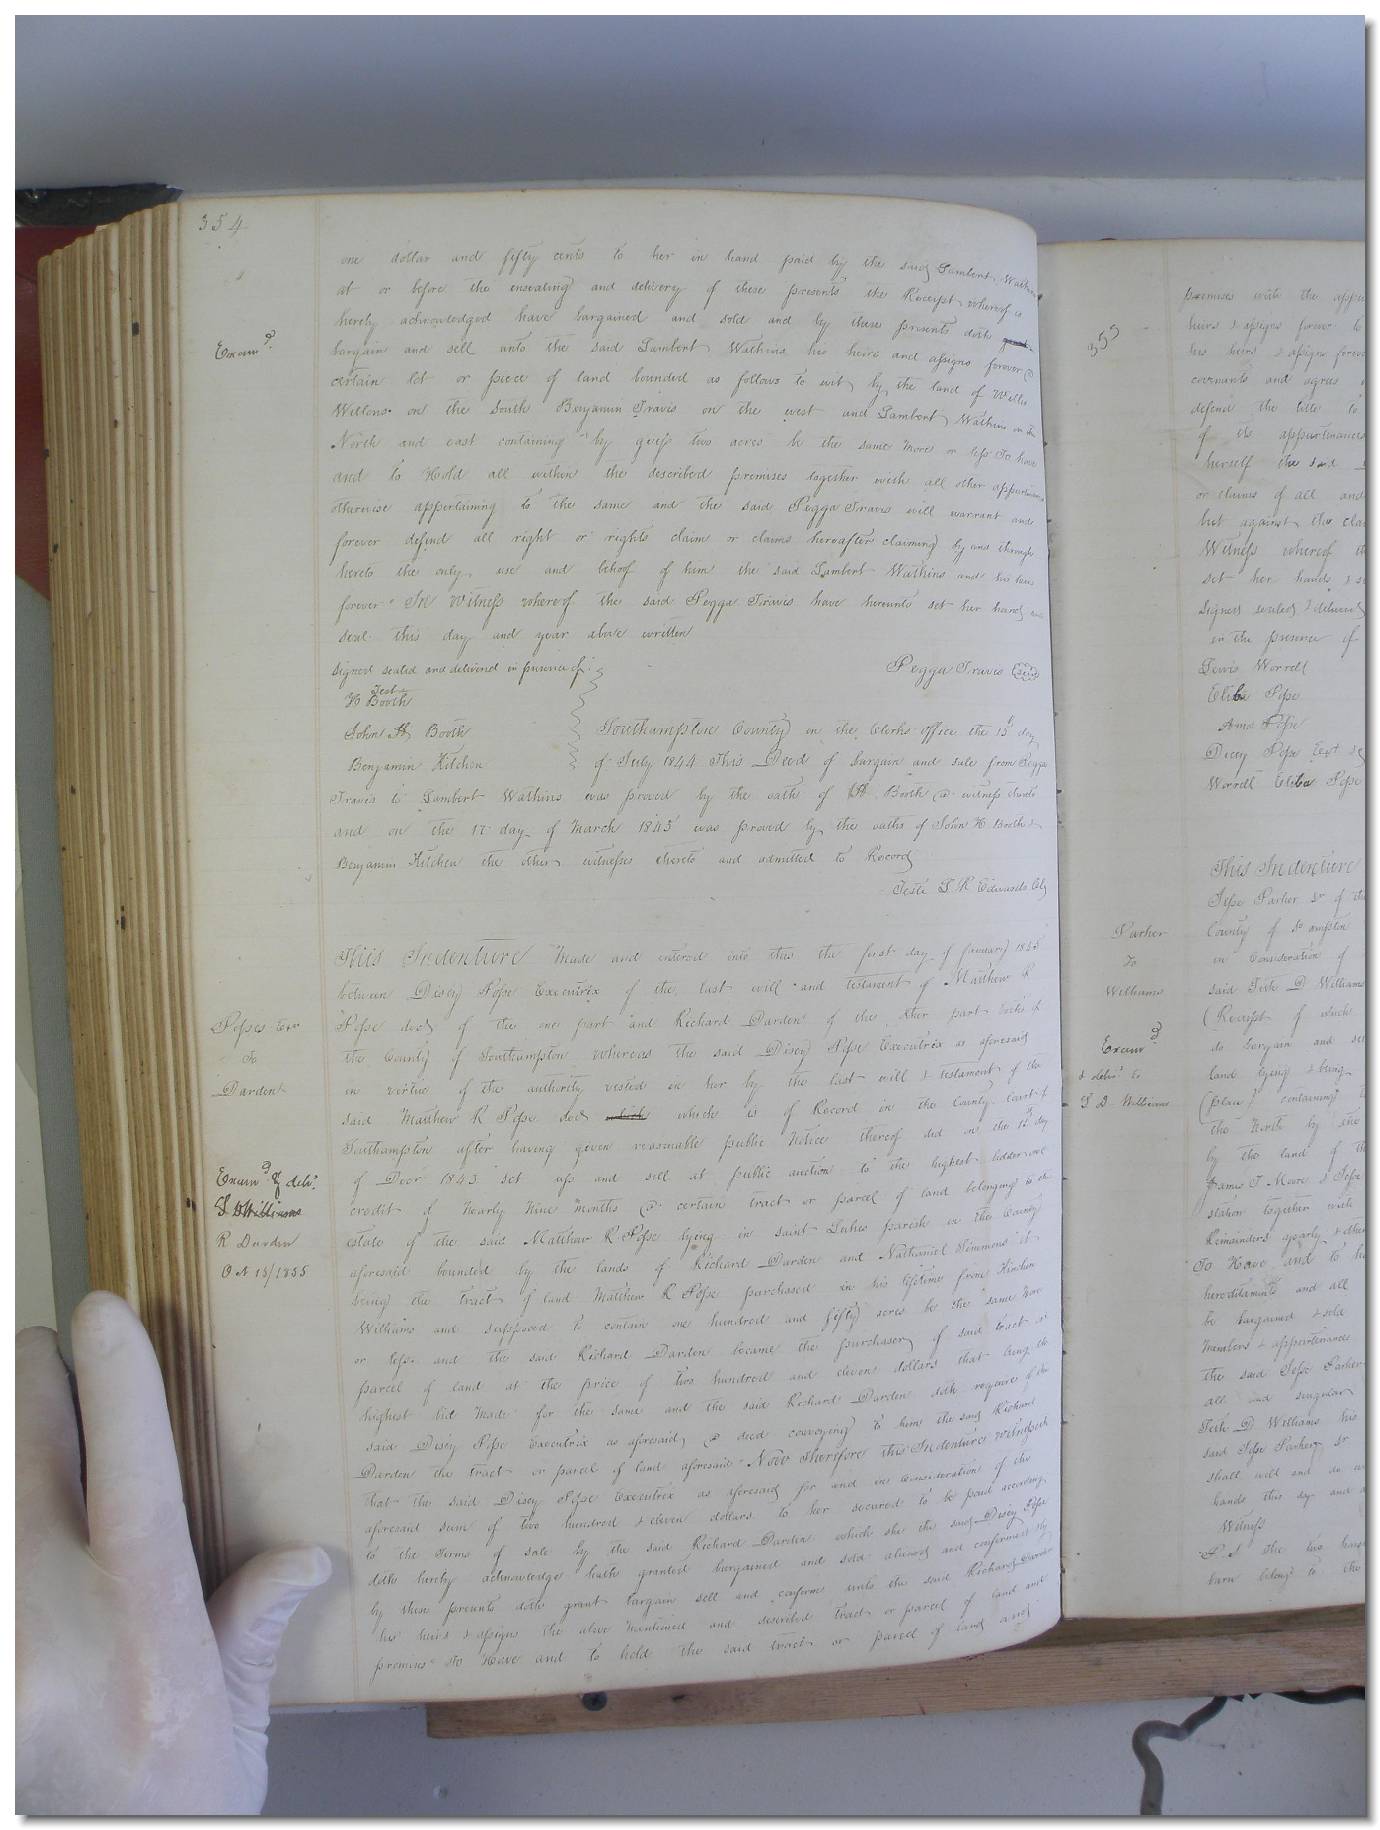 354
one dollar and fifty cents to her in hand paid by the said Lambert Watkins
at or before the ensealing and delivery of these presents the Receipt whereof is
hereby acknowledged have bargained and sold and by these presents doth
Examd.
bargain and sell unto the said Lambert Watkins his heirs and assigns forever a
certain lot or piece of land bounded as follows to wit, by the land of Willis
on the South Benjamin Travis on the west and Lambert Watkins on the
North and east containing by guess two acres be the same more or less To have
and to Hold all within the described premises together with all other
otherwise appertaining to the same and the said Pegga Travis will warrant and
forever defend all right or rights claim or claims hereafter claiming by and through
hereto the only use and behoof of him the said Lambert Watkins and his heirs
forever In Witness whereof the said Pegga Travis have hereunto set her hand and
seal this day and year above written
Signed sealed and delivered in presence of Pegga Travis Seal
Test
H Booth
John H Booth Southampton County in the Clerks office the 15 day
Benjamin Kitchen of July 1844 This Deed of bargain and sale from Pegga
Travis to Lambert Watkins was proved by the oath of H. Booth a witness thereto
and on the 17 day of March 1845 was proved by the oaths of John H Booth &
Benjamin Kitchen the other witnesses thereto and admitted to Record
Teste L R Edwards Clk
This Indenture Made and entered into this the first day of January 1845
between Dicey Pope Executrix of the last will and testament of Matthew R
Popes Exr
To
Darden
Pope decd of the one part and Richard Darden of the other part both of
the County of Southampton whereas the said Dicey Pope Executrix as aforesaid
in virtue of the authority vested in her by the last will & testament of the
said Matthew R Pope decd which is of Record in the County Court of
Southampton after having given reasonable public Notice thereof did on the 15th day
of Decr 1843 set up and sell at public auction to the highest bidder on a
Examd & delv.
S D Williams
R Darden
Oct 15/1855
credit of Nearly Nine Months a certain tract or parcel of land belonging to the
estate of the said Matthew R Pope lying in saint Lukes parish in the County
aforesaid bounded by the lands of Richard Darden and Nathaniel Simmons it
being the tract of land Matthew R Pope purchased in his lifetime from
Williams and supposed to contain one hundred and fifty acres be the same more
or less and the said Richard Darden became the purchaser of said tract or
parcel of land at the price of two hundred and eleven dollars that being the
highest bid Made for the same and the said Richard Darden doth require of the
said Dicey Pope Executrix as aforesaid a deed conveying to him the said Richard
Darden the tract or parcel of land aforesaid Now Therefore this Indenture witnesseth
that the said Dicey Pope Executrix as aforesaid for and in consideration of the
aforesaid sum of two hundred & eleven dollars to her secured to be paid according
to the Terms of sale by the said Richard Darden which she the said Dicey Pope
doth hereby acknowledge hath granted bargained and sold aliened and confirmed &
by these presents doth grant bargain sell and confirm unto the said Richard Darden
his heirs & assigns the above mentioned and described tract or parcel of land and
premises To Have and to hold the said tract or parcel of land and
355
premises with the
heirs & assigns forever to
his heirs & assigns forever
covenants and agrees
defend the title to
of its appurtenances
herself the said
or claims of all and
but against the
Witness whereof
set her hands &
Signed sealed & delivered
in the presence of
Lewis Worrell
Eliba Pope
Pope
Dicey Pope Ext
Worrell Eliba Pope
This Indenture
Jesse Parker Sr of the
Parker
To
Williams
County of So ampton
in Consideration of
said Seth D Williams
(Receipt of which
Examd
& delvd to
S D Williams
do bargain and
land lying & being
(plan) containing
the North by the
by the land of the
James T Moore & Jesse
station together with
Remainders yearly & other
To Have and to
hereditaments and all
be bargained & sold
Members & appurtenances
the said Jesse Parker
all and singular
Seth D Williams his
said Jesse Parker Sr
shall will and do
hands this day and
Witness
P.S the two
barn belong to the